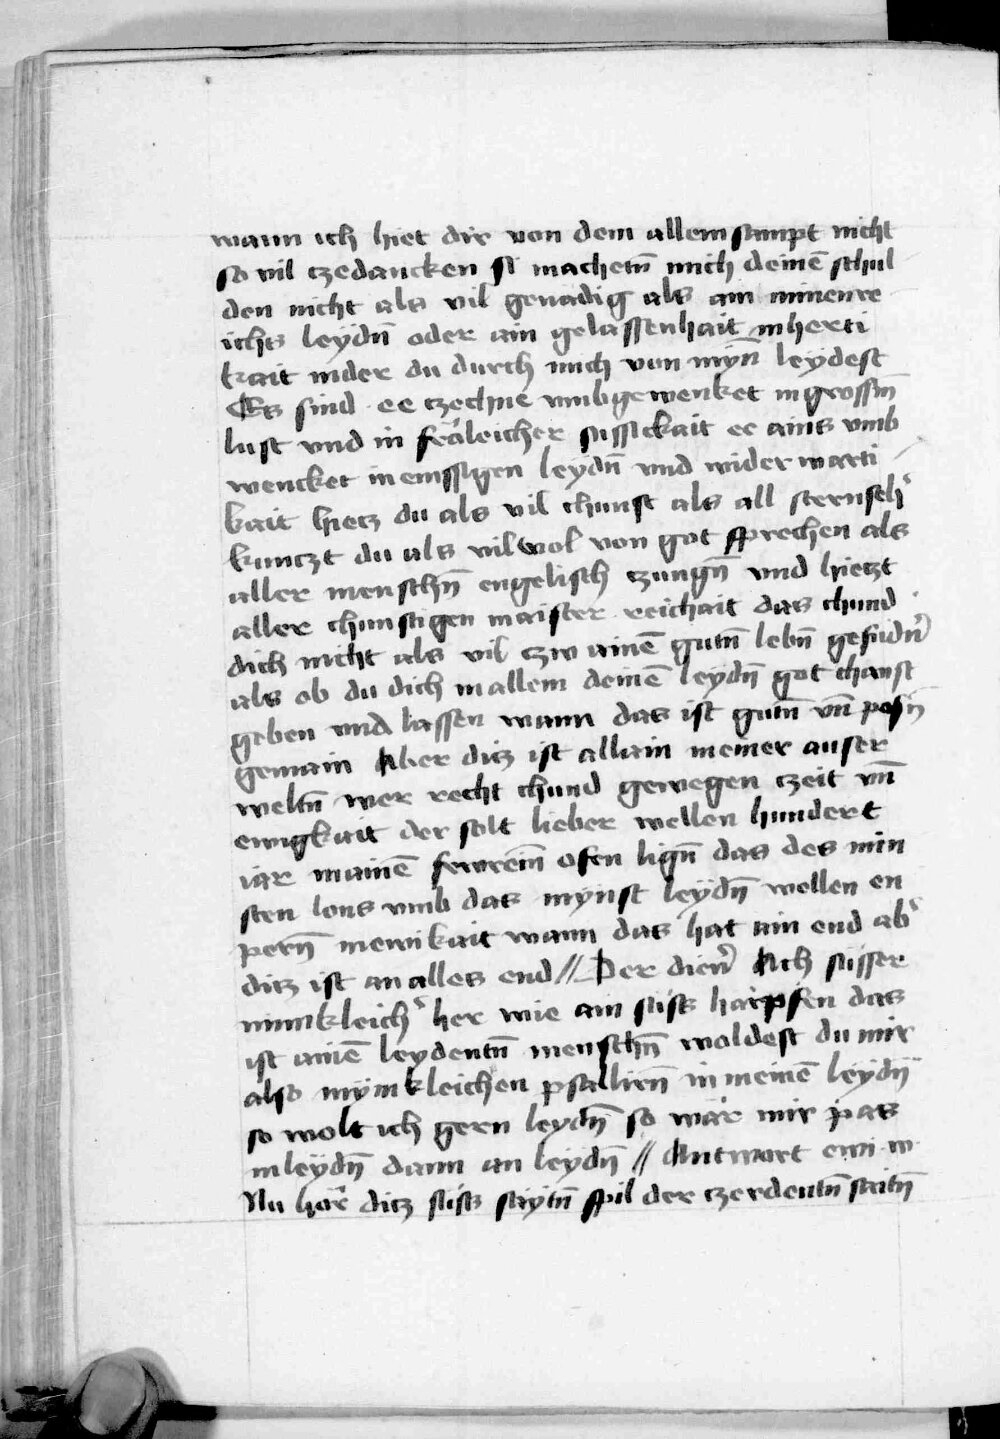 wann ich hiet dir von dem allem sampt nicht
so vil czedancken si machetn̄ mich deinē schul
den nicht als vil genadig als ain minenre
ichs leydn̄ oder ain gelassenhait in herti
kait in der du durch mich von myn̄ leydest
Es sind ee czechne vmbgewenket in grossn̄
lust vnd in frǒleicher süssickait ee ains vmb
wencket in emssigen leydn̄ vnd wider warti
kait hietz du als vil chunst als all sternseh'
kunczt du als vil wol von got sprechen als
aller menschn̄ engelisch czungn̄ vnd hietzt
aller chunstigen maister reichait das chund
dich nicht als vil czw ainē gutn̄ lebn̄ gefüdn̄'
als ob du dich in allem deinē leydn̄ got chanst
geben vnd lassen wann das ist gutn̄ vn̄ posn̄
gemain Aber ditz ist allain meiner auser
weltn̄ wer recht chund gewegen czeit vn̄
ewigkait der solt lieber wellen hundert
iar in ainē fewrein̄ ofen lign̄ das des min
sten lons vmb das mynst leydn̄ wellen en
pern̄ in ewikait wann das hat ain end ab'
ditz ist an alles end // Der dien' Ach süsser
minnkleich' her wie ain süss harpfen das
ist ainē leydentn̄ menschn̄ woldest du mir
also mynnkleichen psallirn̄ in meinē leydn̄
so wolt ich gern leydn̄ so wär mir pas
in leydn̄ dann an leydn̄ // Antwort ewi w
Nu hör ditz süss saytn̄ spil der czerdentn̄ saitn̄